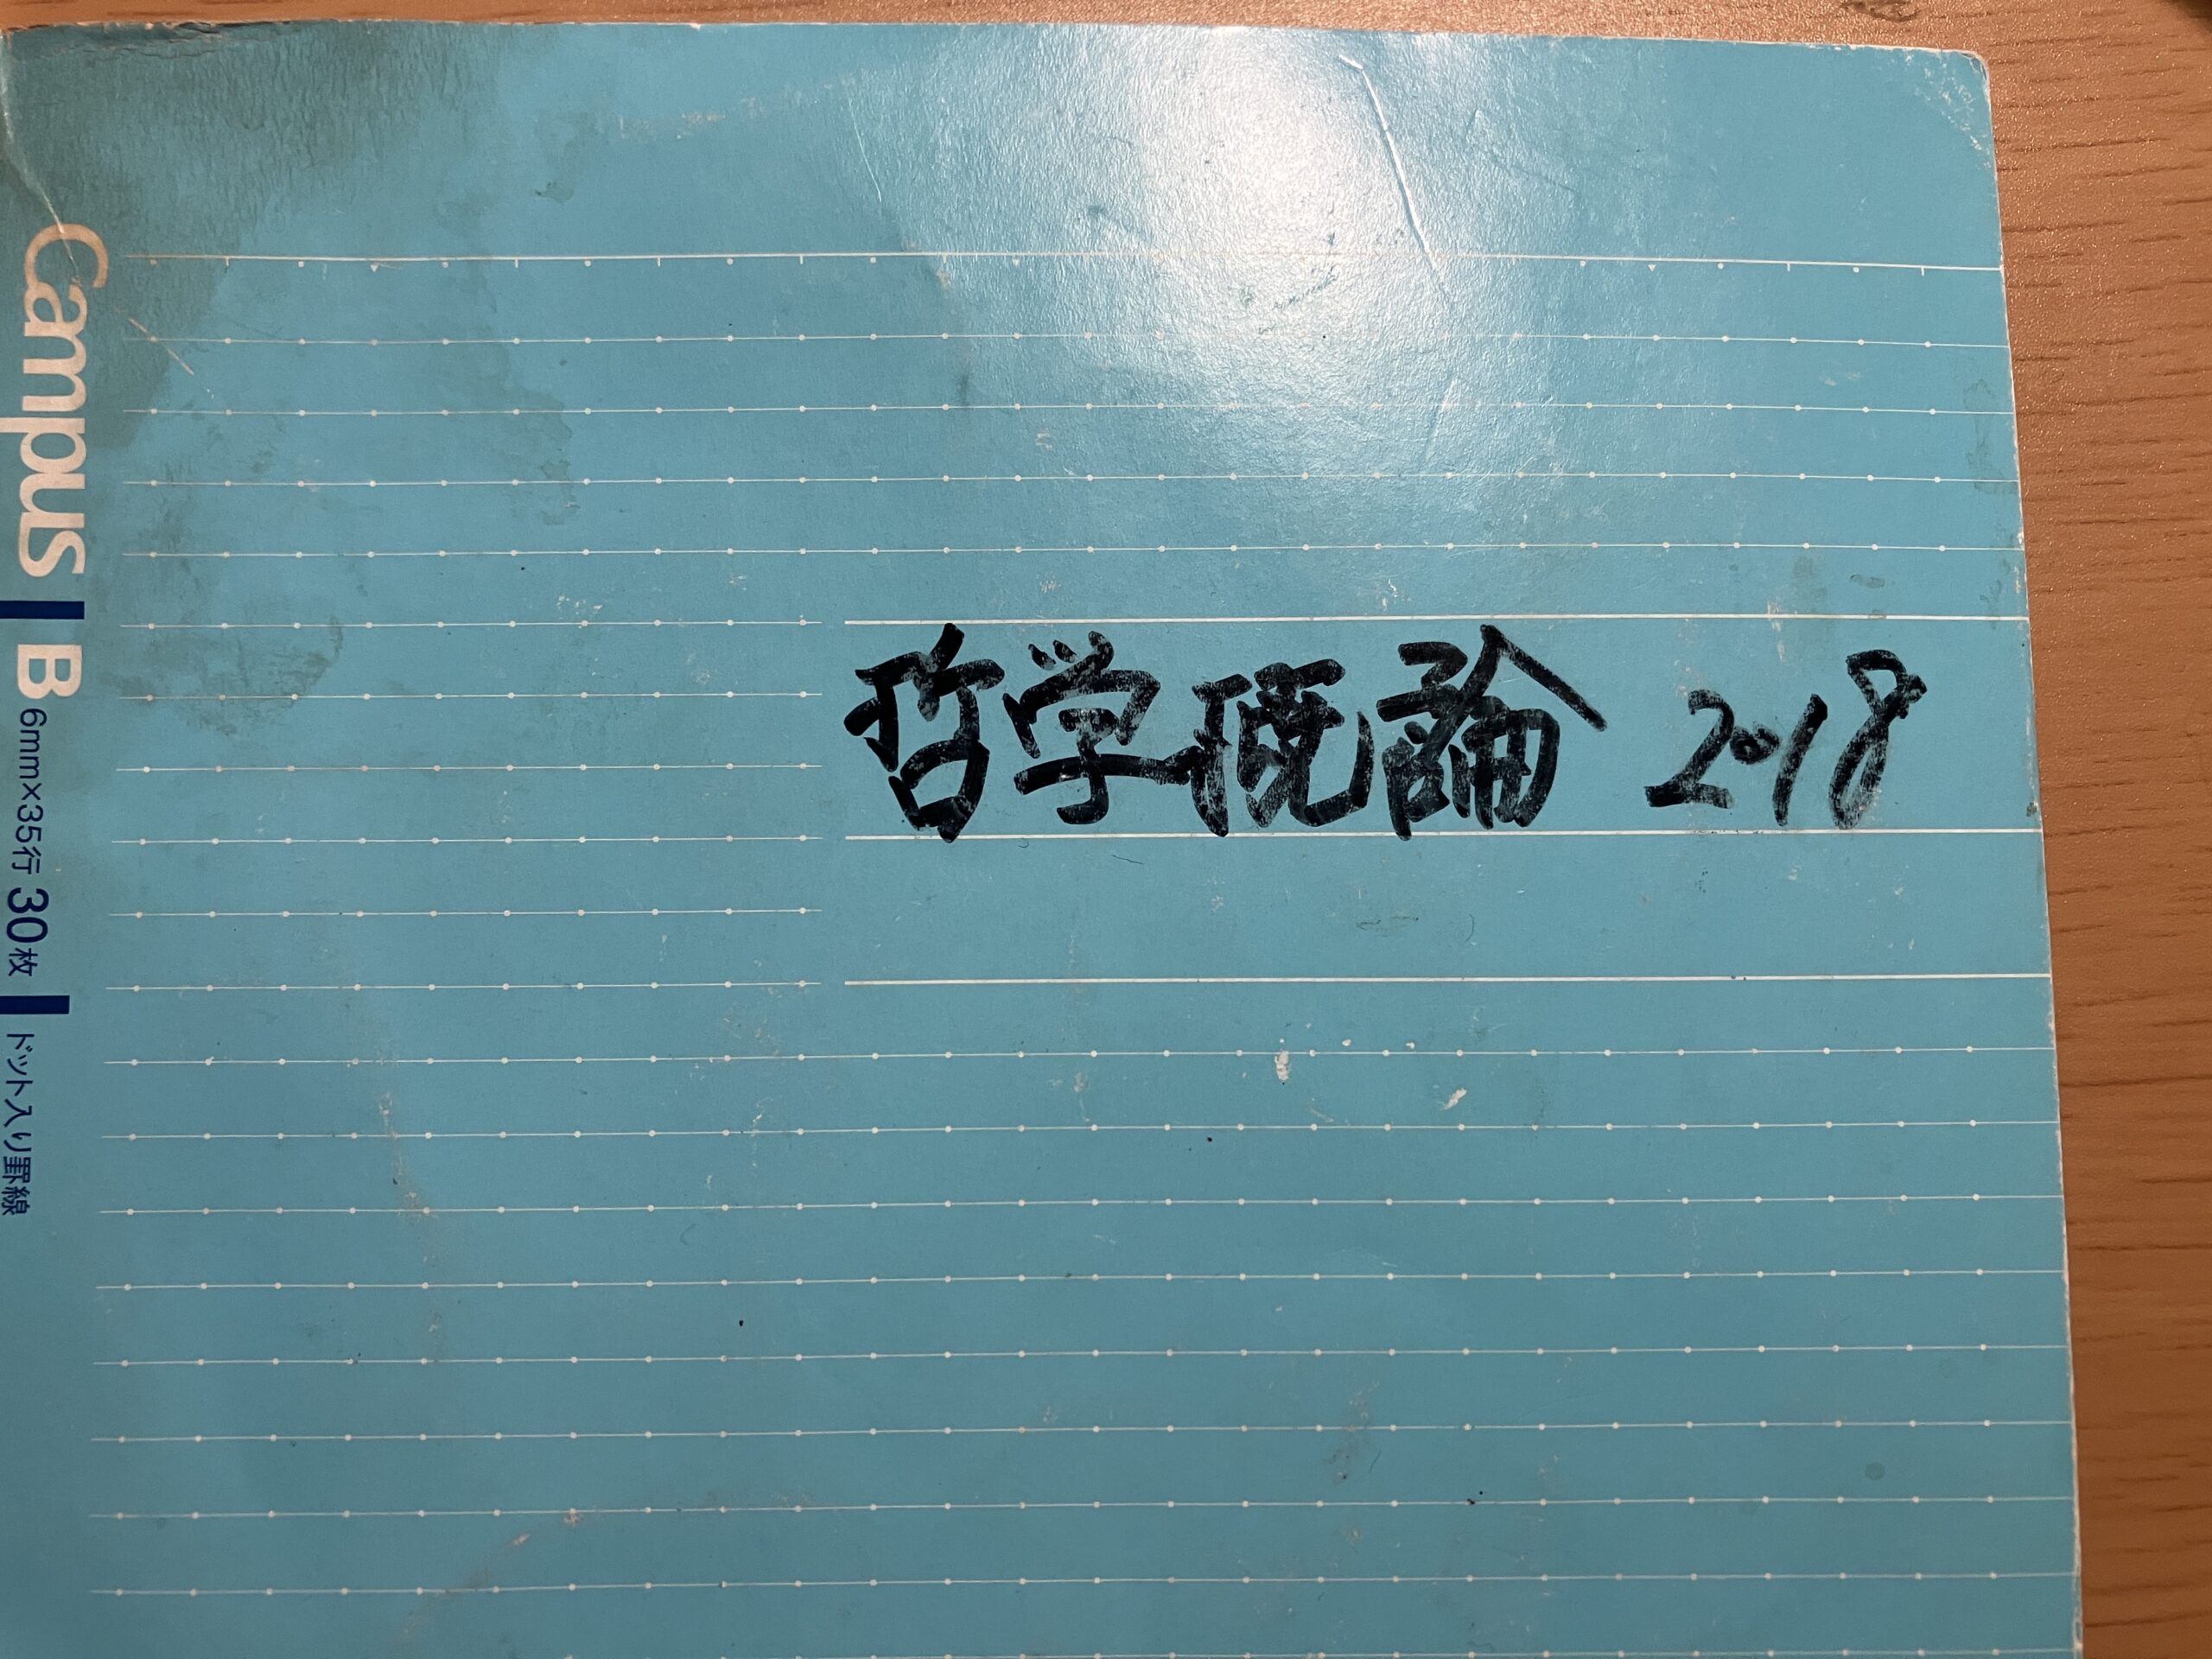 哲学概論 2018
Campus B 6mm×35行 30枚 ドット入り罫線